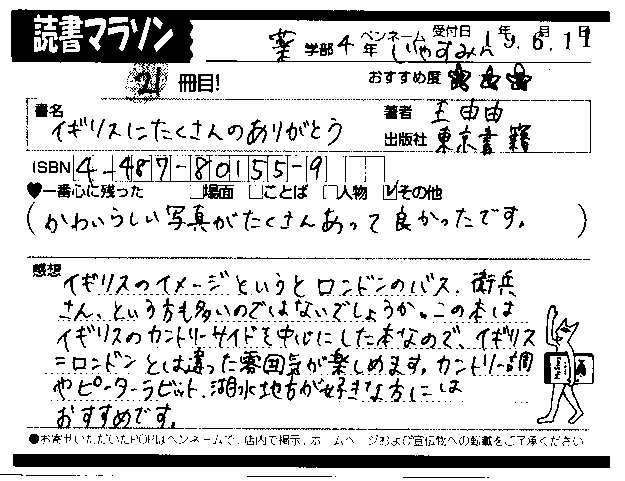 読書マラソン
薬学部4年 ペンネーム いやすみん 受付日 19年6月11日
21冊目! おすすめ度 ★★★
書名 イギリスにたくさんのありがとう
著者 王由由
出版社 東京書籍
ISBN 4-487-80155-9
♥一番心に残った □場面 □ことば □人物 ☑その他
(かわいらしい写真がたくさんあって良かったです。)
感想
イギリスのイメージというとロンドンのバス、衛兵
さん、という方も多いのではないでしょうか。この本は
イギリスのカントリーサイドを中心にした本なので、イギリス
=ロンドンとは違った雰囲気が楽しめます。カントリー調
やピーターラビット、湖水地方が好きな方には
おすすめです。
●お寄せいただいたPOPはペンネームで、店内で掲示、ホームページおよび宣伝物への転載をご了承ください